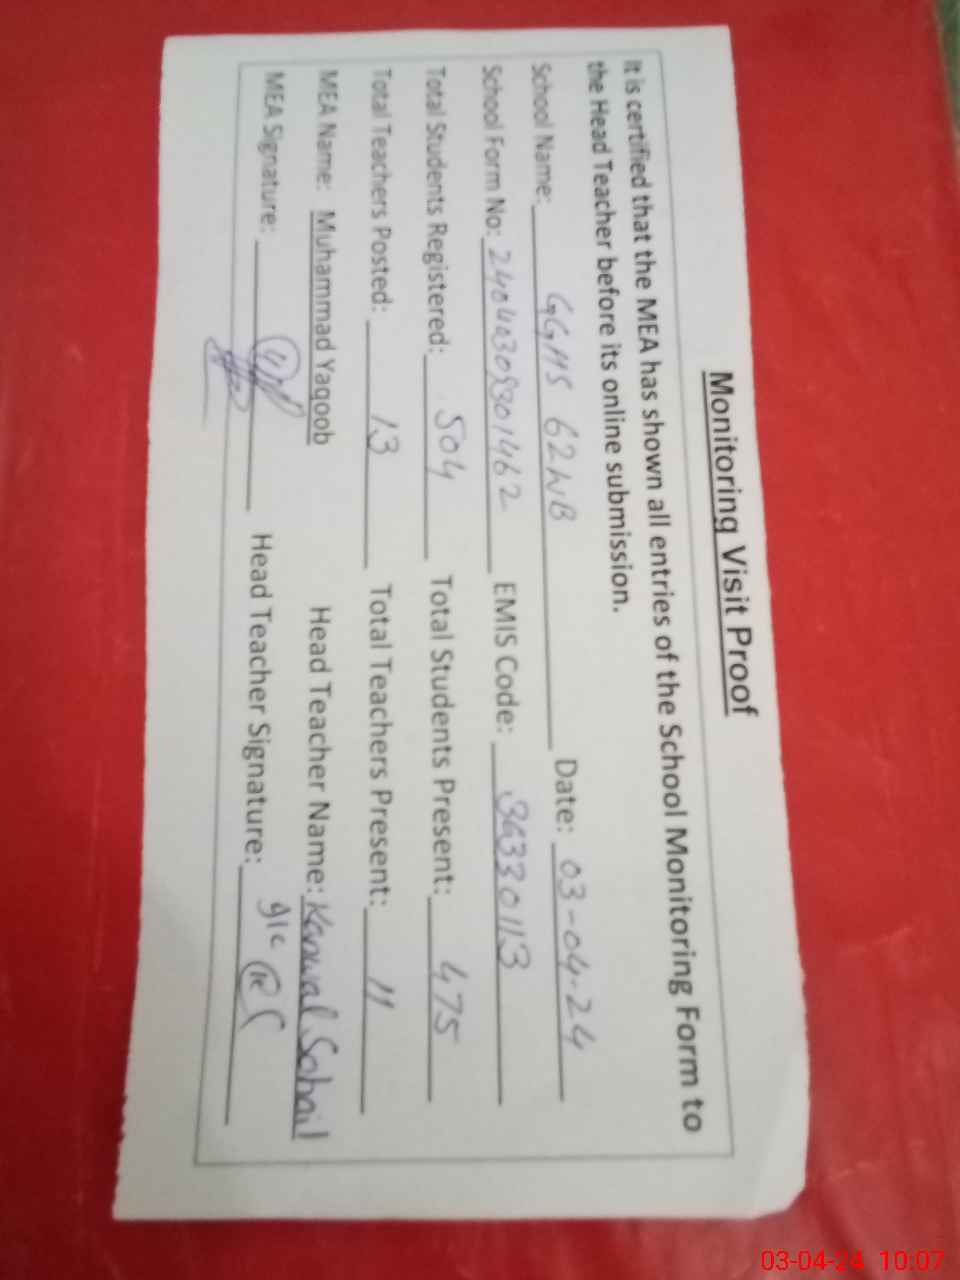 Monitoring Visit Proof
It is certified that the MEA has shown all entries of the School Monitoring Form to
the Head Teacher before its online submission.
School Name: GGHS 62WB Date: 03-04-24
School Form No: EMIS Code: 36330113
Total Students Registered: 504 Total Students Present: 475
Total Teachers Posted: 13 Total Teachers Present: 11
MEA Name: Muhammad Yaqoob Head Teacher Name: Kanwal Sohail
MEA Signature: Head Teacher Signature:
03-04-24 10:07